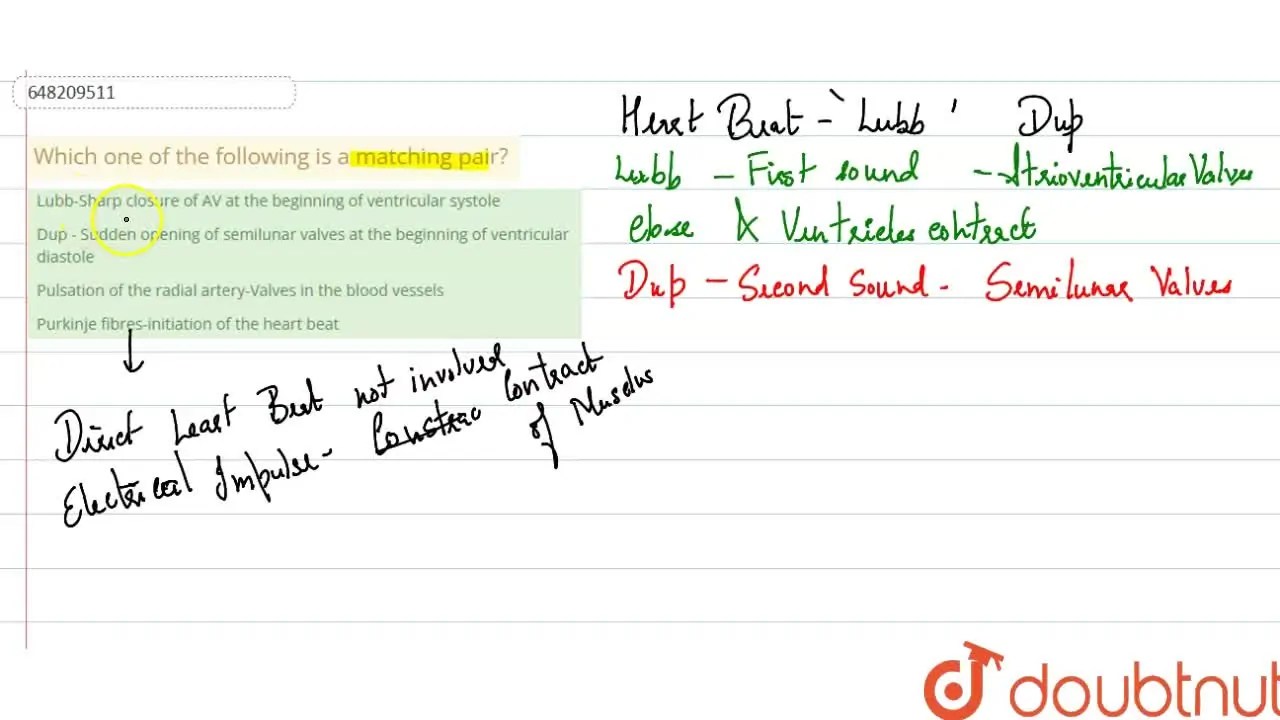 648209511
Which one of the following is a matching pair?
Lubb-Sharp closure of AV at the beginning of ventricular systole
Dup - Sudden opening of semilunar valves at the beginning of ventricular
diastole
Pulsation of the radial artery-Valves in the blood vessels
Purkinje fibres-initiation of the heart beat
Direct Heart Beat not involved
Electrical Impulse - Contract
of Muscles
Heart Beat - `Lubb ' Dup
Lubb - First sound - Atrioventricular Valves
close & Ventricles contract
Dup - Second Sound - Semilunar Valves
doubtnut